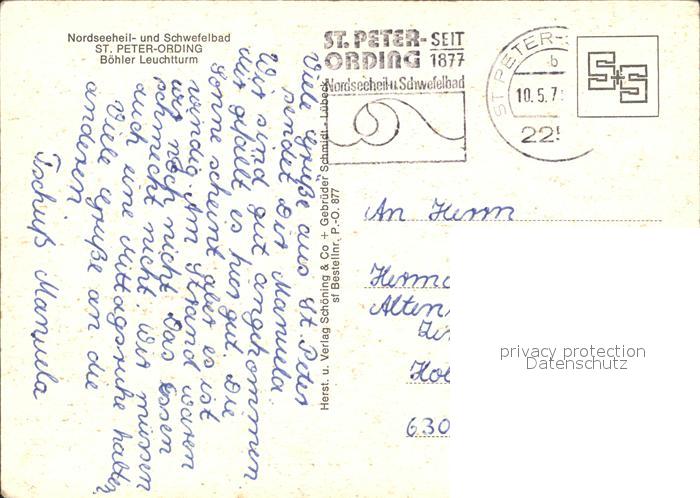 Nordseeheil- und Schwefelbad
ST. PETER-ORDING
Böhler Leuchtturm
ST. PETER-ORDING
SEIT 1877
Nordseeheil-u. Schwefelbad
ST PETER-
b
10.5.7
225
S+S
Viele Grüße aus St. Peter
sendet Dir Manuela.
Wir sind gut angekommen
mir gefällt es hir gut. Die
Sonne scheint aber es ist
windig. Am Strand waren
wir noch nicht. Das Essen
schmeckt nicht. Wir müssen
auch eine Mittagsruhe halten
Viele Grüße an die
anderen
Tschüß Manuela
Herst. u. Verlag Schöning & Co + Gebrüder Schmidt - Lübeck
sf Bestellnr. P.-O. 877
An Herrn
Herma
Alten
Hol
630
privacy protection
Datenschutz